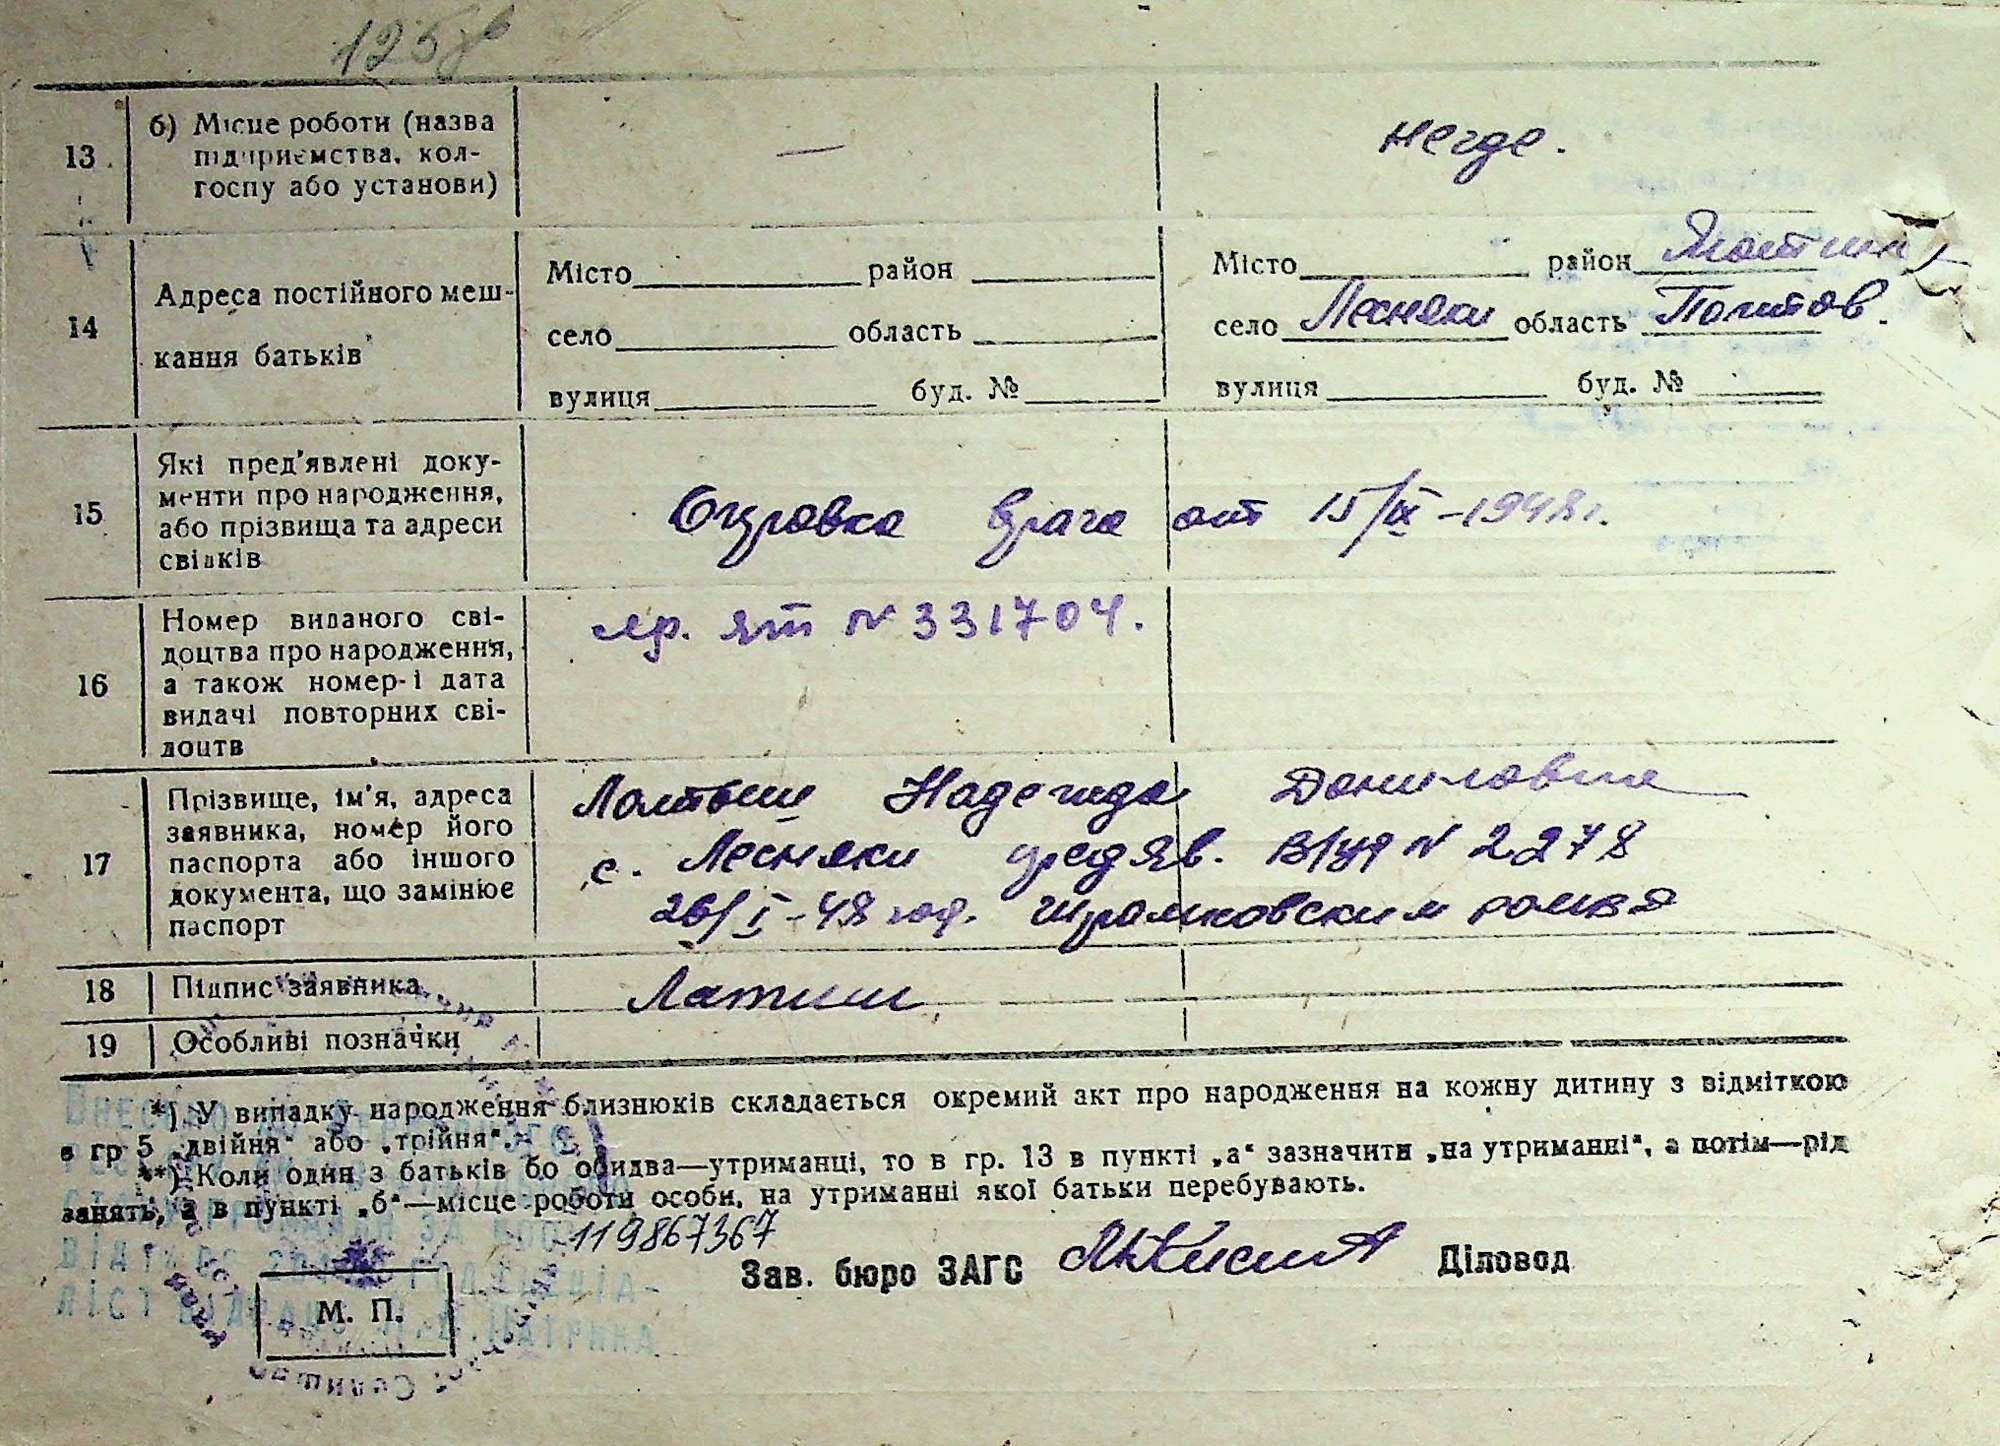 13 б) Місце роботи (назва підприємства, колгоспу або установи) — негде.
14 Адреса постійного мешкання батьків
Місто район Місто район Яготин
село область село Лесняки область Полтов.
вулиця буд. № вулиця буд. №
15 Які пред'явлені документи про народження, або прізвища та адреси свідків
Справка врача от 15/IX-1948г.
16 Номер виданого свідоцтва про народження, а також номер і дата видачі повторних свідоцтв
№ 331704.
17 Прізвище, ім'я, адреса заявника, номер його паспорта або іншого документа, що замінює паспорт
Надежда Даниловна
с. Лесняки предяв. № 2278
-48 год. Шрамковским
18 Підпис заявника
Латиш
19 Особливі позначки
*) У випадку народження близнюків складається окремий акт про народження на кожну дитину з відміткою
в гр 5 „двійня" або „трійня".
**) Коли один з батьків бо обидва—утриманці, то в гр. 13 в пункті „а" зазначити „на утриманні", а потім—рід
занять, а в пункті „б"—місце роботи особи, на утриманні якої батьки перебувають.
119867367
Зав. бюро ЗАГС Діловод
М. П.